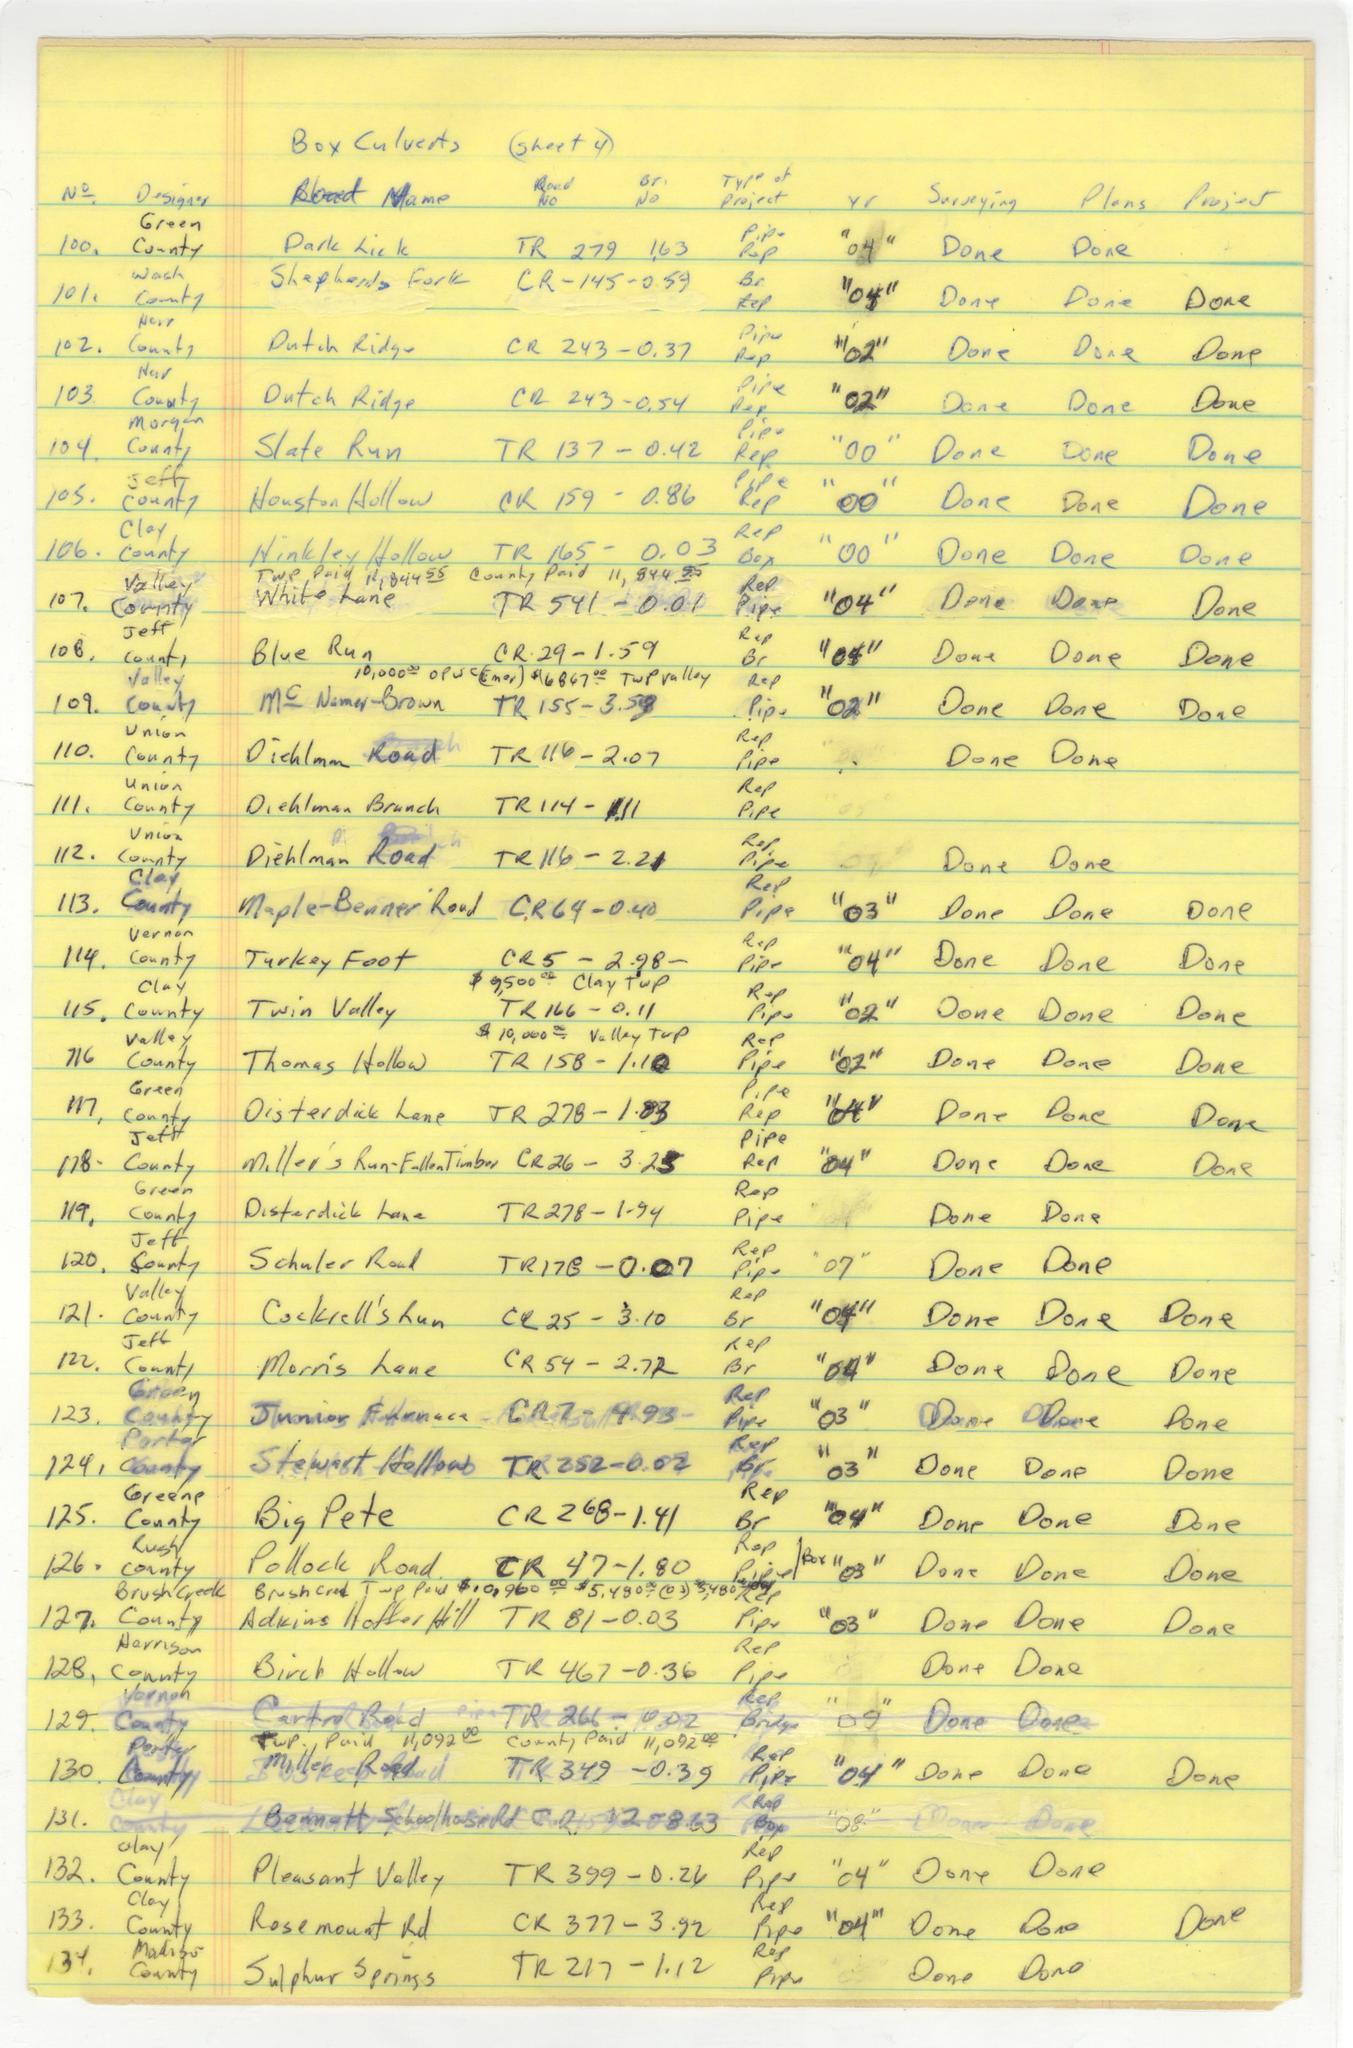 Box Culverts (sheet 4)
No. Designer Name Road No Br. No Type of Project Yr Surveying Plans Project
Green
100. County Dark Lick TR 279 1.63 Pipe Rep "04" Done Done
Wash
101. County Shepherds Fork CR-145-0.59 Br Rep "04" Done Done Done
102. County Dutch Ridge CR 243-0.37 Pipe Rep "02" Done Done Done
103. County Dutch Ridge CR 243-0.54 Pipe Rep "02" Done Done Done
Morgan
104. County Slate Run TR 137-0.42 Pipe Rep "00" Done Done Done
Jeff
105. County Houston Hollow CR 159-0.86 Pipe Rep "00" Done Done Done
Clay
106. County Hinkley Hollow TR 165-0.03 Rep Box "00" Done Done Done
Valley Twp Paid 11,844 55 County Paid 11,844 55
107. County White Lane TR 541-0.01 Rep Pipe "04" Done Done Done
Jeff
108. County Blue Run CR-29-1.59 Rep Br "04" Done Done Done
Valley 10,000 00 OPWC (Emer) $6867 00 Twp Valley
109. County Mc Namer-Brown TR 155-3.59 Rep Pipe "02" Done Done Done
Union
110. County Diehlman Road TR 116-2.07 Rep Pipe Done Done
Union
111. County Diehlman Branch TR 114- Rep Pipe
Union
112. County Diehlman Road TR 116-2.21 Rep Pipe Done Done
Clay
113. County Maple-Benner Road CR 64-0.40 Rep Pipe "03" Done Done Done
Vernon
114. County Turkey Foot CR 5-2.98- Rep Pipe "04" Done Done Done
Clay $9,500 00 Clay Twp
115. County Twin Valley TR 166-0.11 Rep Pipe "02" Done Done Done
Valley $10,000 00 Valley Twp
116 County Thomas Hollow TR 158-1.10 Rep Pipe "02" Done Done Done
Green
117. County Disterdick Lane TR 278-1.83 Pipe Rep "04" Done Done Done
Jeff
118- County Miller's Run-Fallen Timber CR 26-3.25 Pipe Rep "04" Done Done Done
Green
119. County Disterdick Lane TR 278-1.94 Rep Pipe Done Done
Jeff
120. County Schuler Road TR 178-0.07 Rep Pipe "07" Done Done
Valley
121. County Cockrell's Run CR 25-3.10 Rep Br "04" Done Done Done
Jeff
122. County Morris Lane CR 54-2.72 Rep Br "04" Done Done Done
Green
123. County Junior Furnace CR 7-4.93 Rep Pipe "03" Done Done Done
Porter
124. County Stewart Hollow TR 252-0.02 Rep Br "03" Done Done Done
Greene
125. County Big Pete CR 268-1.41 Rep Br "04" Done Done Done
Rush
126. County Pollock Road CR 47-1.80 Rep Pipe/Box "03" Done Done Done
Brush Creek Brush Creek Twp Paid $10,960 00 $5,480 00 (03) Rep
127. County Adkins Hill TR 81-0.03 Pipe "03" Done Done Done
Harrison
128. County Birch Hollow TR 467-0.36 Rep Pipe Done Done
Vernon
129. County Road TR 266-0.02 Rep Bridge "09" Done Done
Porter Twp. Paid 11,092 00 County Paid 11,092 00
130. County Miller Road TR 349-0.39 Rep Pipe "04" Done Done Done
Clay
131. County Bennett Schoolhouse Rd Rep Box "08" Done Done
Clay
132. County Pleasant Valley TR 399-0.26 Rep Pipe "04" Done Done
Clay
133. County Rosemount Rd CR 377-3.92 Rep Pipe "04" Done Done Done
Madison
134. County Sulphur Springs TR 217-1.12 Rep Pipe Done Done